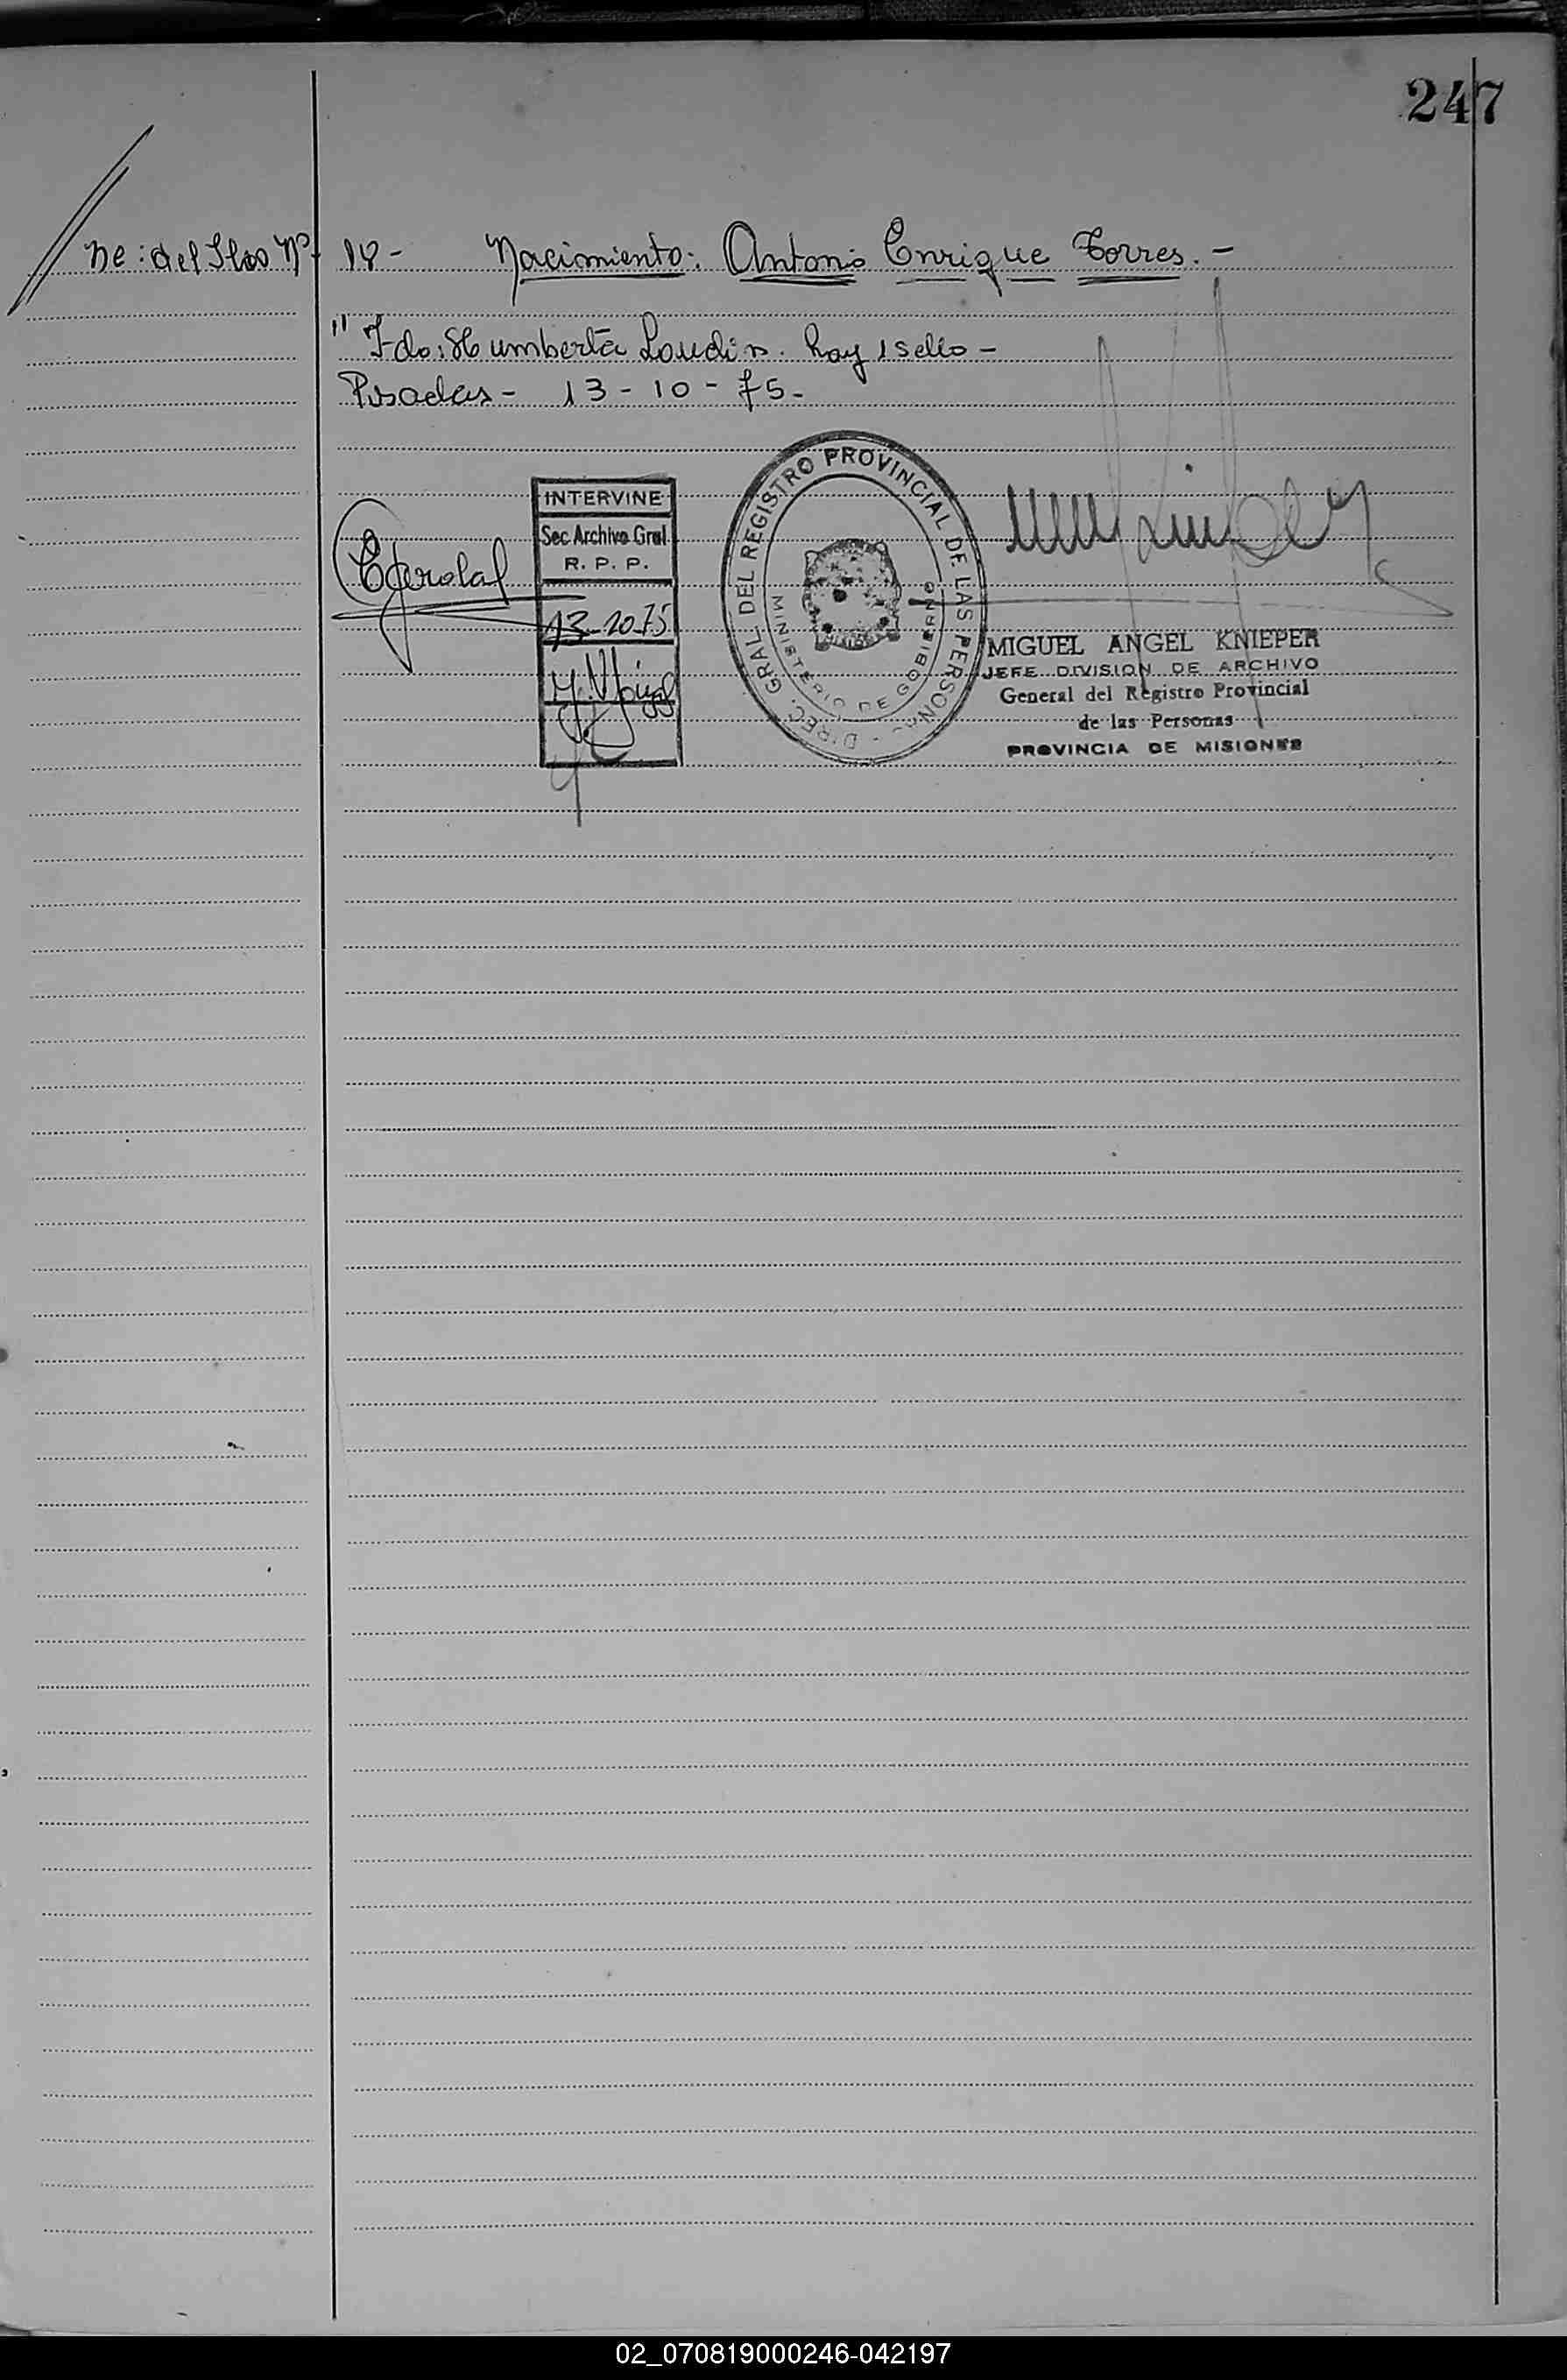 247
del Nº 18 - Nacimiento: Antonio Enrique Torres. -
" Fdo: Humberto hay 1 sello -
Posadas - 13 - 10 - 75 -
INTERVINE
Sec. Archivo Gral
R. P. P.
13-10-75
DIREC. GRAL. DEL REGISTRO PROVINCIAL DE LAS PERSONAS -
MINISTERIO DE GOBIERNO
MIGUEL ANGEL KNIEPER
JEFE DIVISION DE ARCHIVO
General del Registro Provincial
de las Personas
PROVINCIA DE MISIONES
02_070819000246-042197